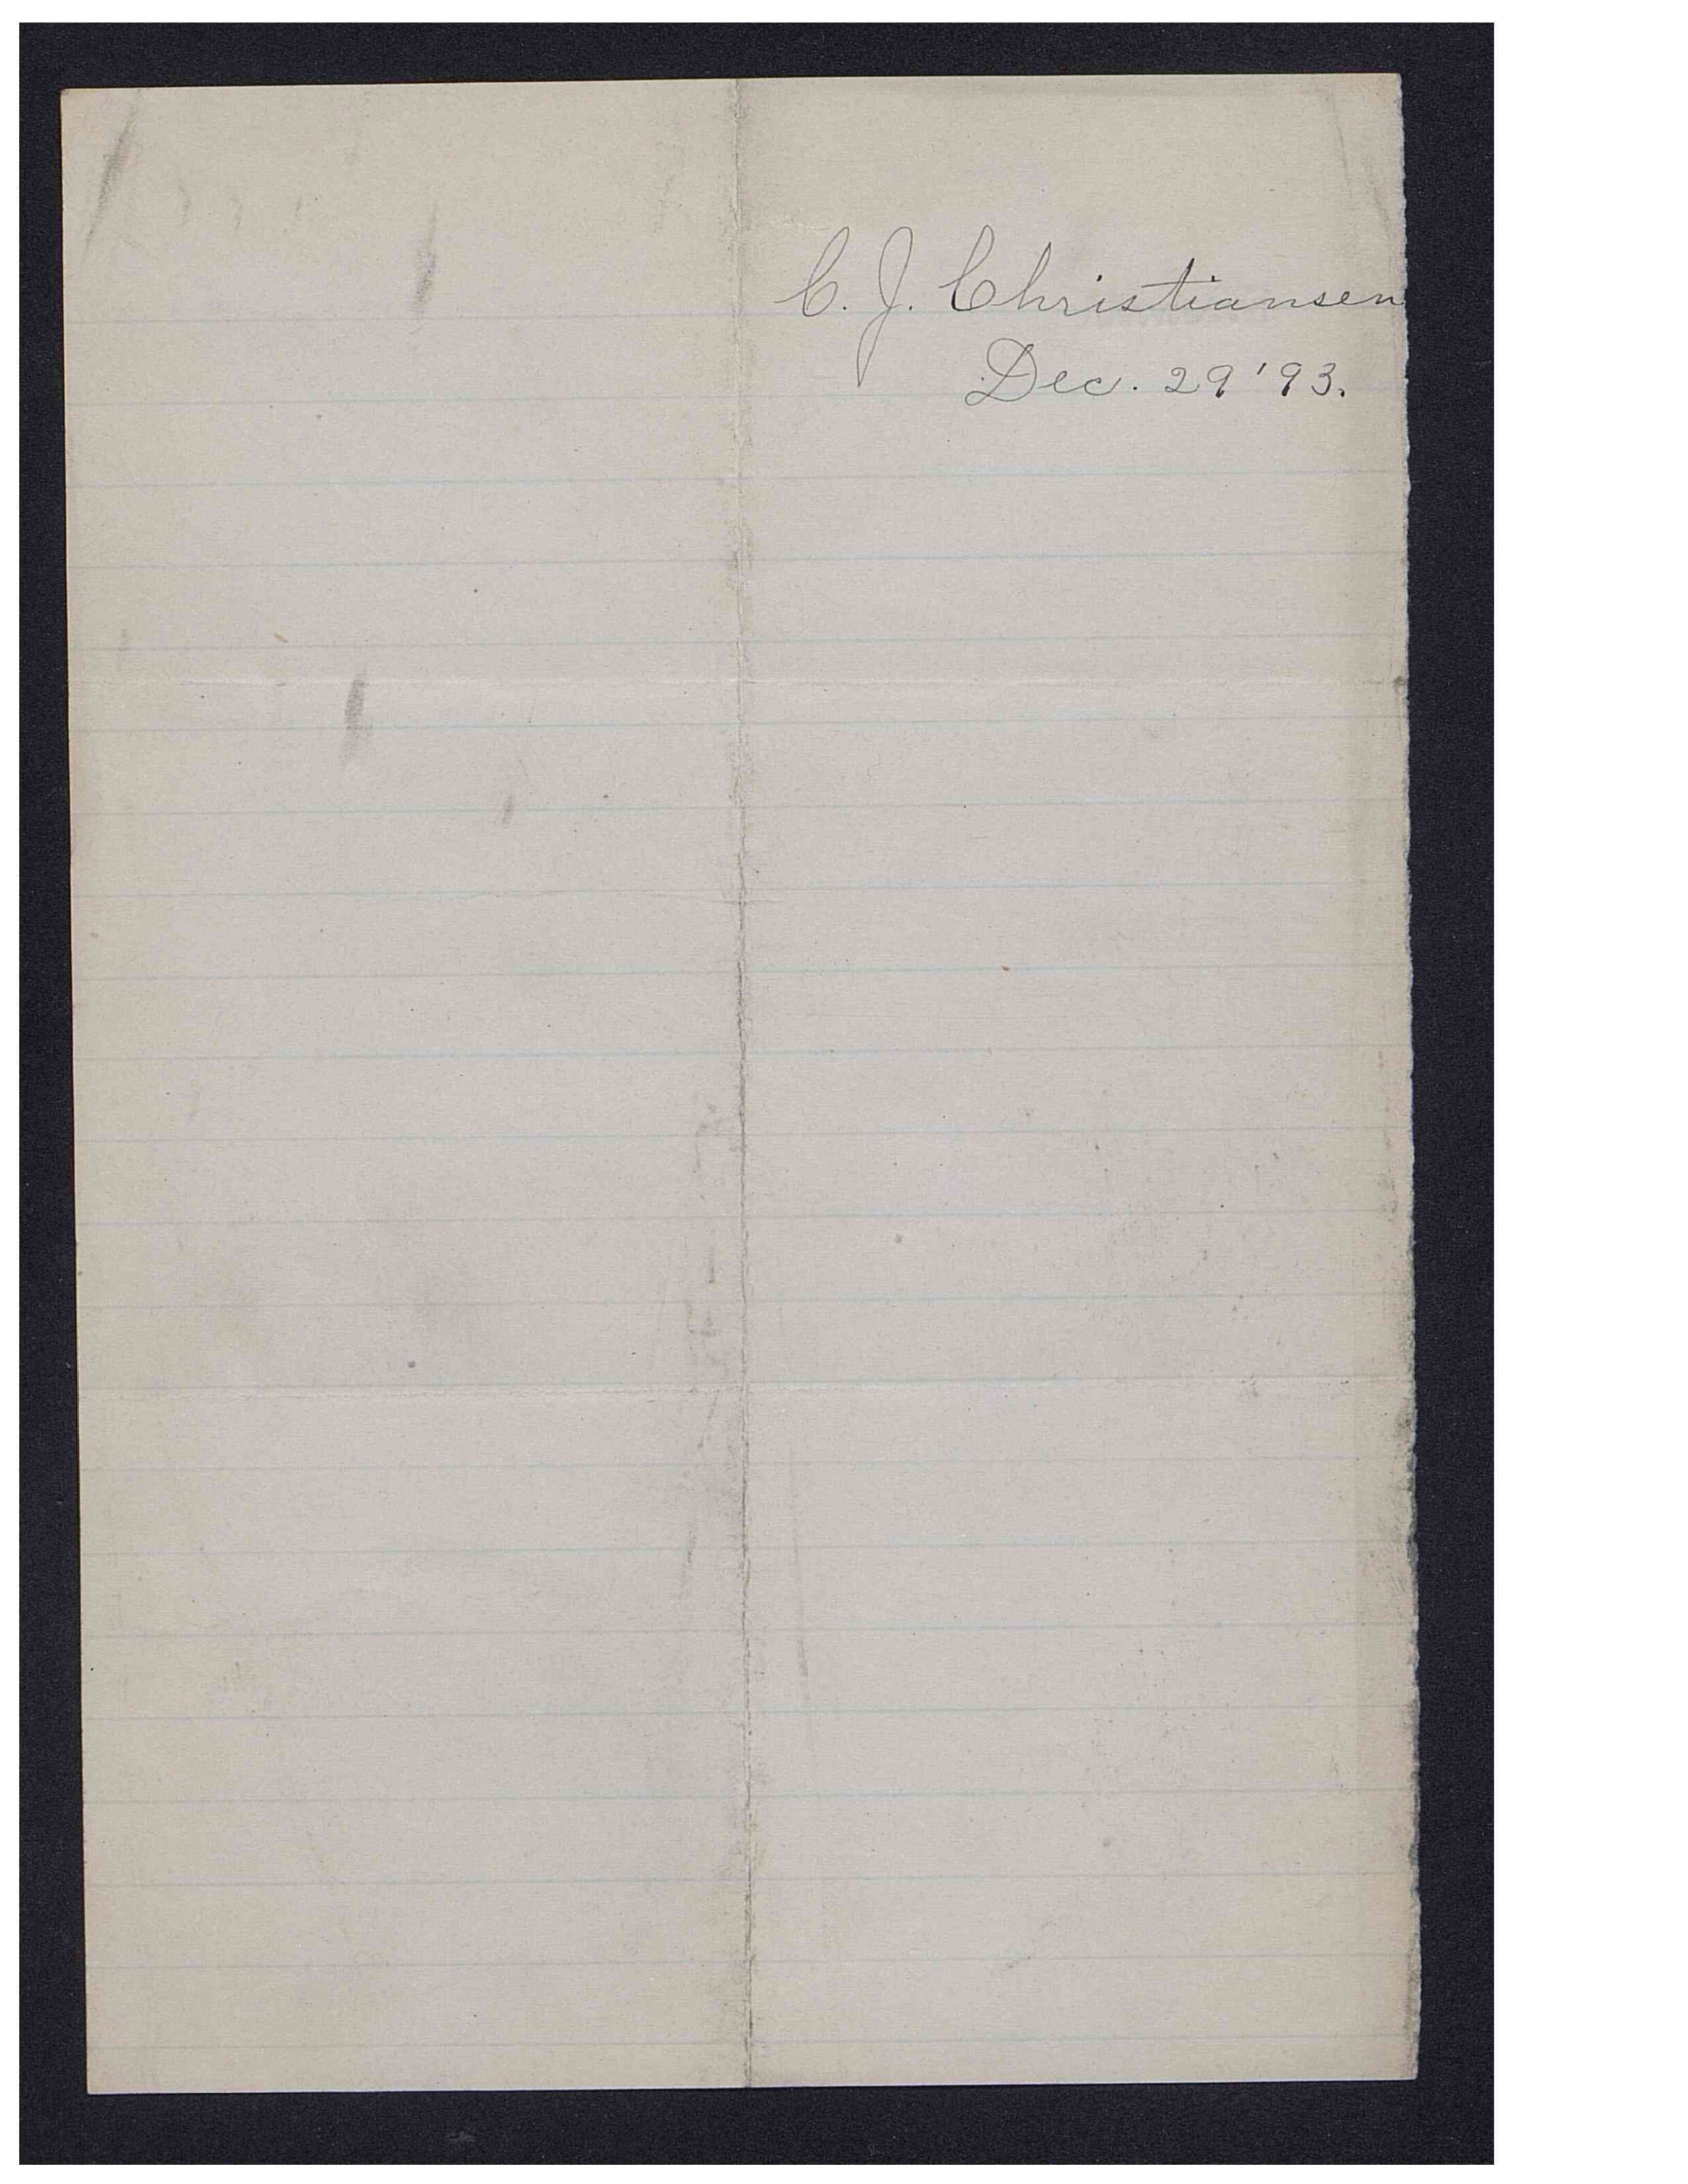 C. J. Christiansen
Dec. 29 '93.